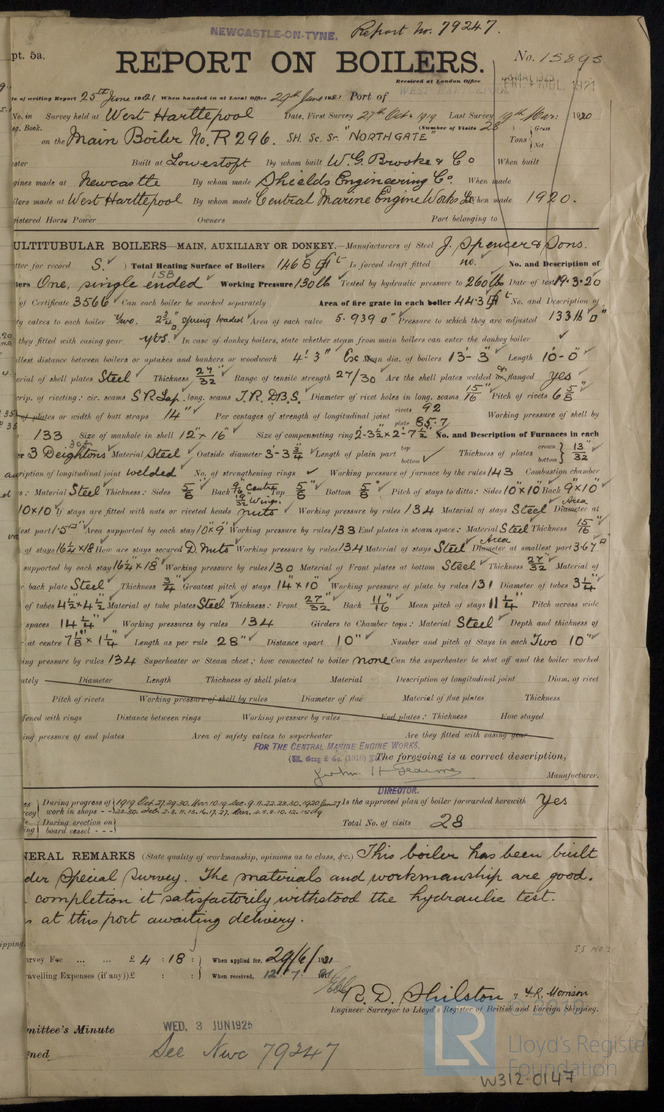 NEWCASTLE-ON-TYNE. Report No. 79247.
pt. 5a.
REPORT ON BOILERS. No. 15895
Received at London Office
te of writing Report 25th June 1921 When handed in at Local Office 29th June 1921 Port of
No. in Survey held at West Hartlepool Date, First Survey 27th Oct. 1919 Last Survey 9th Mar: 1920
eg. Book. (Number of Visits 28
on the Main Boiler No. R 296. SH. Sc. Sr "NORTHGATE" Tons Gross Net
ster Built at Lowestoft By whom built W. G. Brooke & Co When built
gines made at Newcastle By whom made Shields Engineering Co. When made
lers made at West Hartlepool By whom made Central Marine Engine Works Ld When made 1920.
gistered Horse Power Owners Port belonging to
ULTITUBULAR BOILERS—MAIN, AUXILIARY OR DONKEY.—Manufacturers of Steel J. Spencer & Sons.
tter for record S. ) Total Heating Surface of Boilers 1465 ft Is forced draft fitted no. No. and Description of
158
lers One, single ended Working Pressure 130 lb Tested by hydraulic pressure to 260 lb Date of test 19.3.20
of Certificate 3566 Can each boiler be worked separately Area of fire grate in each boiler 44.3 ft No. and Description of
ty valves to each boiler Two, 2 3/4" spring loaded Area of each valve 5.939 □" Pressure to which they are adjusted 133 lb □"
they fitted with easing gear yes. In case of donkey boilers, state whether steam from main boilers can enter the donkey boiler
llest distance between boilers or uptakes and bunkers or woodwork 4' 3" dia. of boilers 13'-3" Length 10'-0"
terial of shell plates Steel Thickness 27/32" Range of tensile strength 27/30 Are the shell plates welded or flanged yes
crip. of riveting: cir. seams S.R. Lap. long. seams T.R.D.B.S. Diameter of rivet holes in long. seams 15/16" Pitch of rivets 6 5/8"
of plates or width of butt straps 14" Per centages of strength of longitudinal joint rivets 92 plate 85.7 Working pressure of shell by
133 Size of manhole in shell 12" x 16" Size of compensating ring 2-3½ x 2-7½ No. and Description of Furnaces in each
3 Deightons Material Steel Outside diameter 3-3¾" Length of plain part top bottom Thickness of plates crown bottom 13/32
scription of longitudinal joint welded No. of strengthening rings Working pressure of furnace by the rules 143 Combustion chamber
s: Material Steel Thickness: Sides 5/8 Back 9/16 Centre 19/32 Wings. Top 5/8 Bottom 5/8 Pitch of stays to ditto: Sides 10"x10" Back 9"x10"
10"x10" If stays are fitted with nuts or riveted heads nuts Working pressure by rules 134 Material of stays Steel Area Diameter at
est part 1.5 Area supported by each stay 10"x9" Working pressure by rules 133 End plates in steam space: Material Steel Thickness 15/16"
of stays 16½"x18" How are stays secured D. Nuts Working pressure by rules 134 Material of stays Steel Area Diameter at smallest part 3.67□"
supported by each stay 16½"x18" Working pressure by rules 130 Material of Front plates at bottom Steel Thickness 27/32" Material of
r back plate Steel Thickness 3/4" Greatest pitch of stays 14"x10" Working pressure of plate by rules 131 Diameter of tubes 3¼"
of tubes 4½"x4½" Material of tube plates Steel Thickness: Front 27/32" Back 11/16" Mean pitch of stays 11¼" Pitch across wide
spaces 14¼" Working pressures by rules 134 Girders to Chamber tops: Material Steel Depth and thickness of
r at centre 7⅛"x1¼" Length as per rule 28" Distance apart 10" Number and pitch of Stays in each Two 10"
ing pressure by rules 134 Superheater or Steam chest; how connected to boiler none Can the superheater be shut off and the boiler worked
ately Diameter Length Thickness of shell plates Material Description of longitudinal joint Diam. of rivet
Pitch of rivets Working pressure of shell by rules Diameter of flue Material of flue plates Thickness
fened with rings Distance between rings Working pressure by rules End plates: Thickness How stayed
ing pressure of end plates Area of safety valves to superheater Are they fitted with easing gear
FOR THE CENTRAL MARINE ENGINE WORKS.
The foregoing is a correct description,
Manufacturer.
DIRECTOR.
During progress of work in shops - - Is the approved plan of boiler forwarded herewith Yes
During erection on board vessel - - - Total No. of visits 28
NERAL REMARKS (State quality of workmanship, opinions as to class, &c.) This boiler has been built
der Special Survey. The materials and workmanship are good.
completion it satisfactorily withstood the hydraulic test.
s at this port awaiting delivery.
rvey Fee ... ... £ 4 : 18 : When applied for, 29/6/1921
avelling Expenses (if any) £ : : When received, 12.7.
R. D. Shilston & H.R. Morrison
Engineer Surveyor to Lloyd's Register of British and Foreign Shipping.
mittee's Minute WED. 3 JUN 1925
ned See Nwc 79247
LR Lloyd's Register Foundation
W312-0147